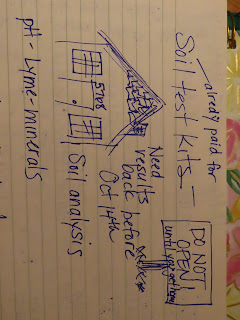 alredy paid for
Soil test kits -
DO NOT
OPEN!
until
Need
results
back before
Oct 14th
Soil analysis
pH - Lyme - minerals